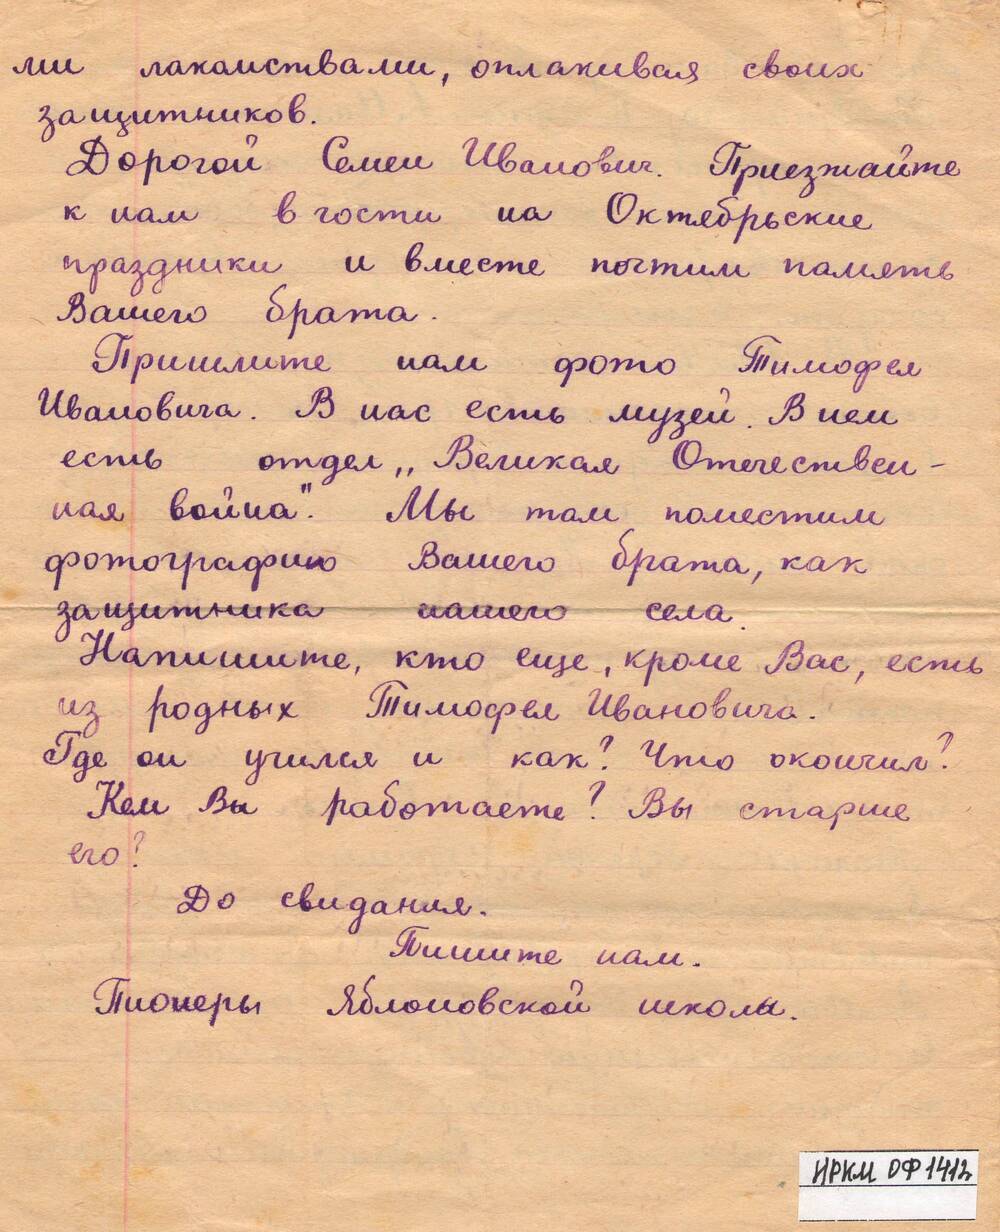 ми лакомствами, оплакивая своих
защитников.
Дорогой Семен Иванович. Приезжайте
к нам в гости на Октябрьские
праздники и вместе почтим память
Вашего брата.
Пришлите нам фото Тимофея
Ивановича. В нас есть музей. В нем
есть отдел „Великая Отечествен-
ная война". Мы там поместим
фотографию Вашего брата, как
защитника нашего села.
Напишите, кто еще, кроме Вас, есть
из родных Тимофея Ивановича.
Где он учился и как? Что окончил?
Кем Вы работаете? Вы старше
его?
До свидания.
Пишите нам.
Пионеры Яблоновской школы.
ИРКМ ОФ1412